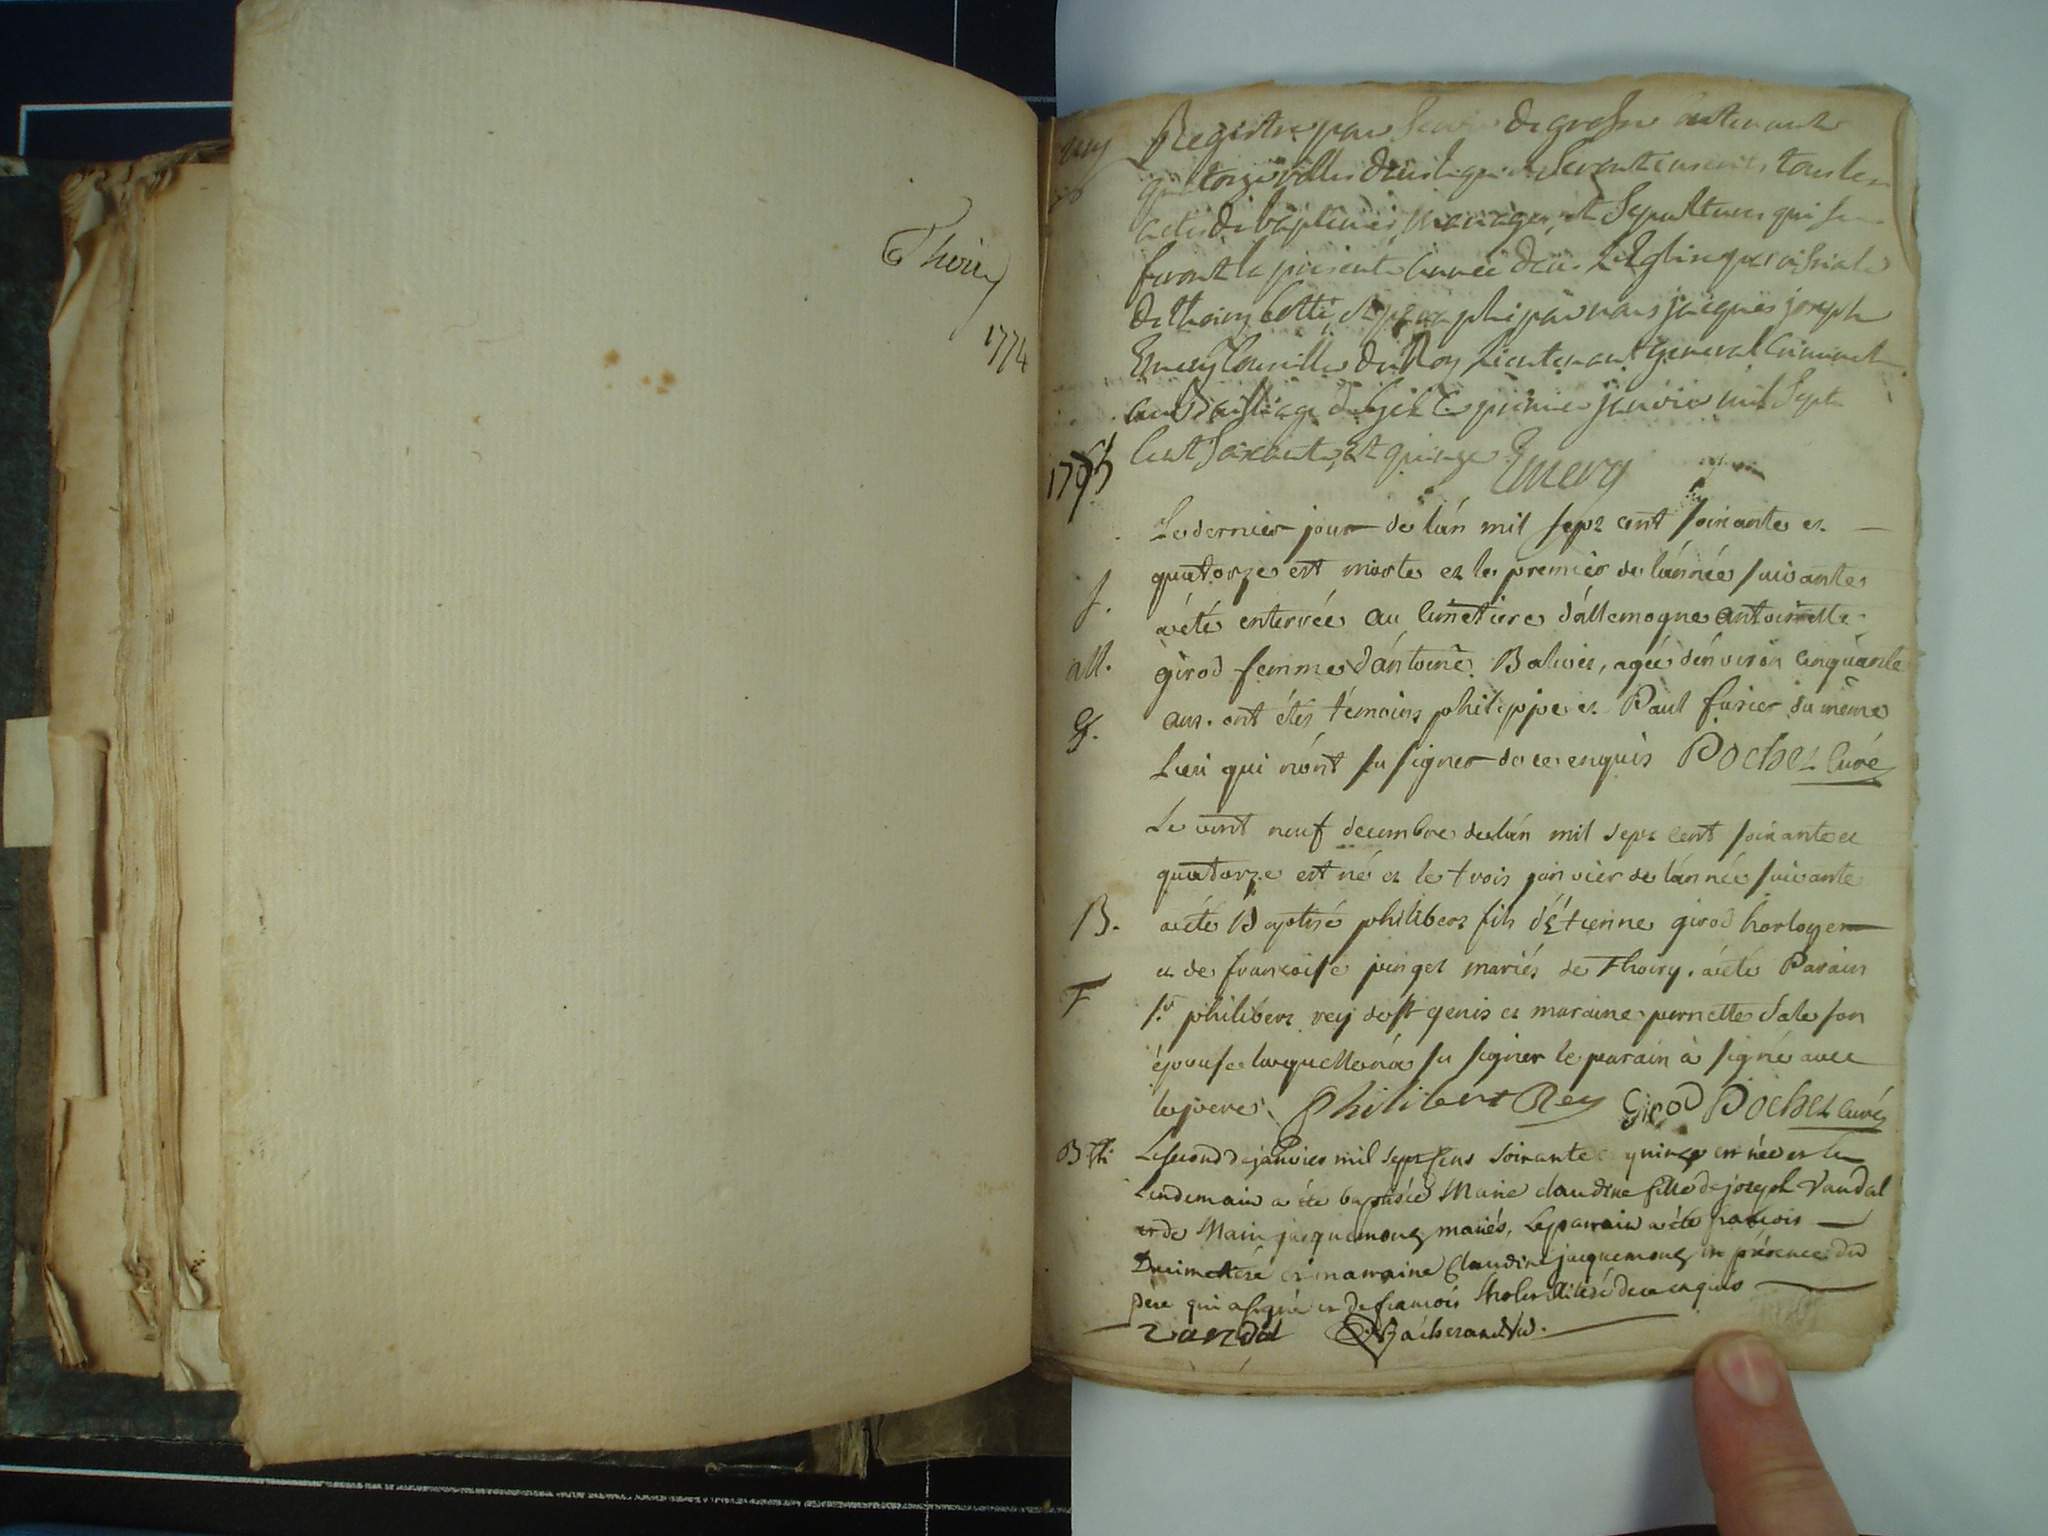 Thoiry
1774
Registre pour servir de grosse contenant
quatorze rolles dans lequel seront inscrits tous les
actes de baptemes, mariages, et Sepultures qui se
feront la presente année dans L'Eglise paroissiale
de thoiry cotté, et paraphé par nous jacques joseph
Emery Conseiller du Roy Lieutenant general Criminel
au Bailliage de Gex Ce premier janvier mil Sept
Cent Soixante, et quinze Emery
1775
Le dernier jour de l'án mil sept cent soixante et
quatorze est morte et le premier de l'ánnée suivante
S.
aété enterrée au cimetiere d'állemogne antoinette
all.
girod femme d'ántoine Balivet, agée d'énviron cinquante
G.
ans. ont étés témoins philippe et Paul fusier du même
Lieu qui n'ont su signer de ce enquis Pochet Curé
Le vint neuf decembre de lán mil sept cent soixante et
quatorze est né et le trois janvier de lánnée suivante
B.
aété Baptisé philibert fils d'Étienne girod horloger
et de francoise pinget mariés de Thoiry. aété Parain
T
Sr. philibert rey de st genis et maraine pernette Sale son
épouse laquelle n'a su signer le parain à signé avec
le pere. Philibert Rey Girod Pochet curé
B Thi
Le second de janvier mil sept sens soixante quinze est née et le
Lendemain a été baptisée Marie claudine fille de joseph Vandal
et de Marie jacquemoux mariés, Le parrain a été francois
et marraine Claudine jacquemoux en présence du
père qui a signé et de francois illiteré de ce enquis
vandal